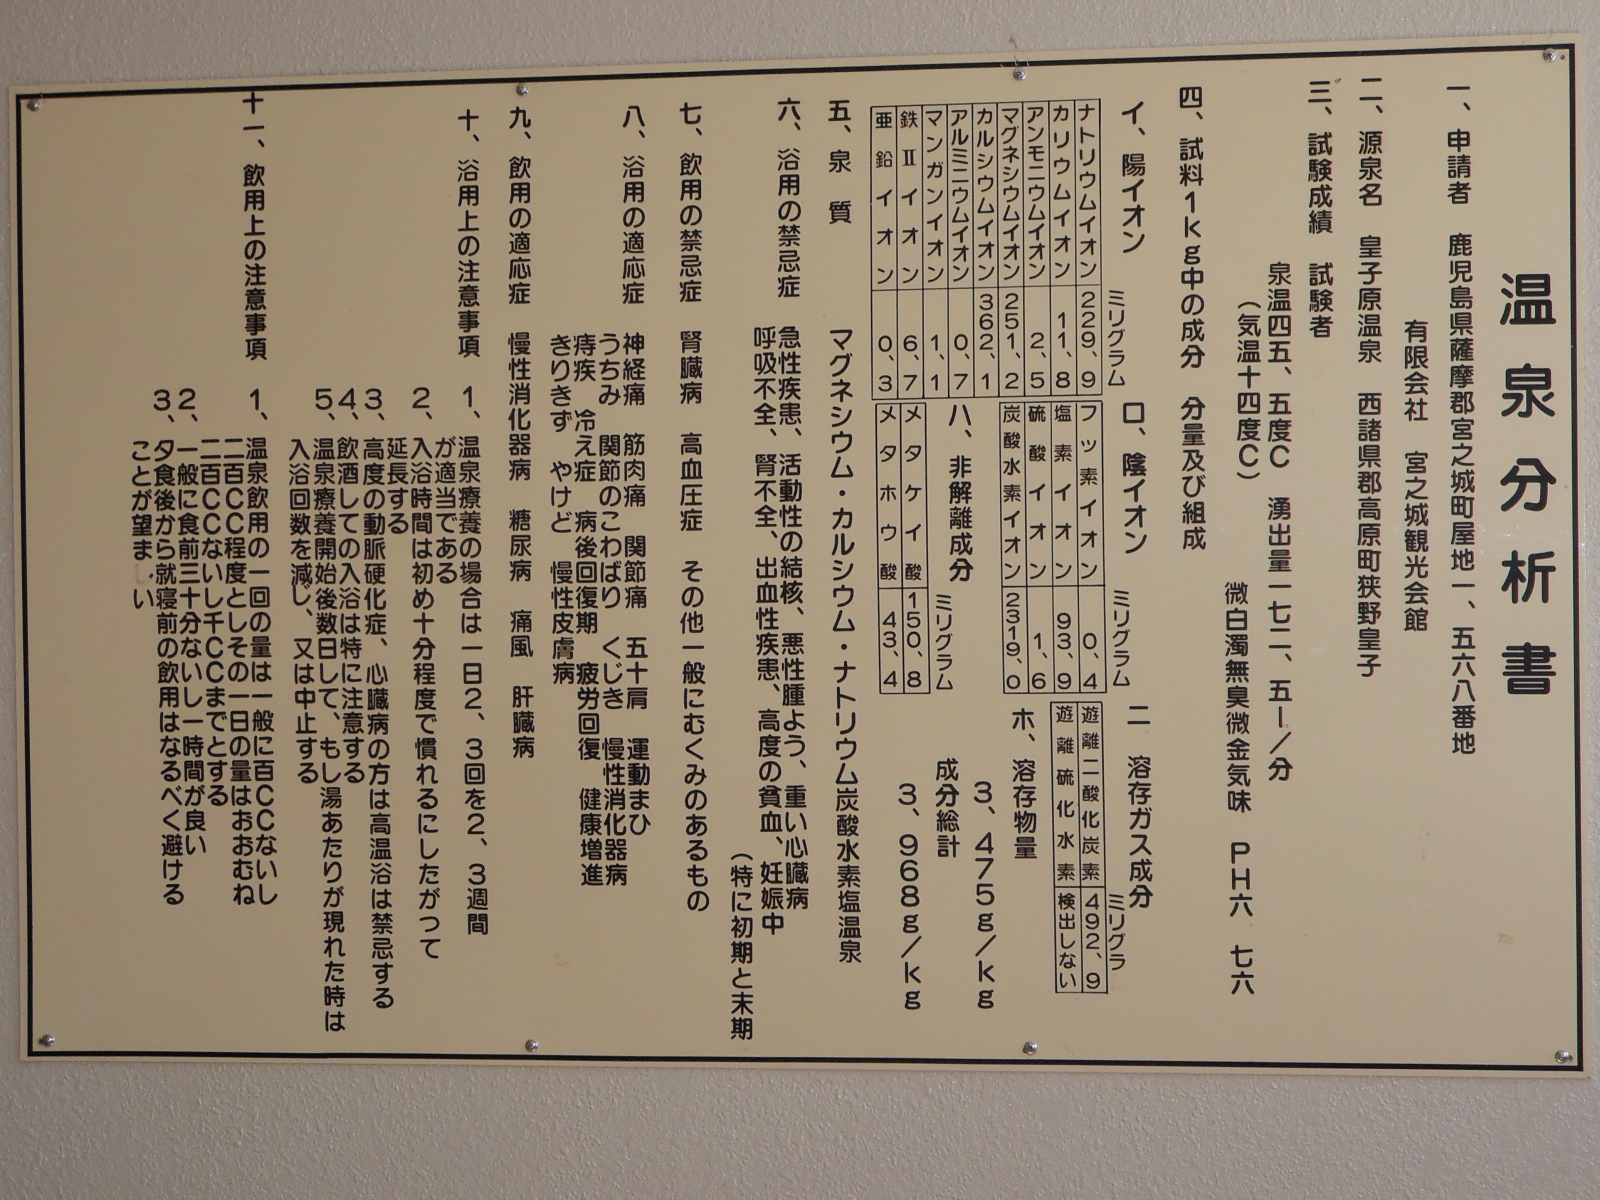 温泉分析書
一、申請者　鹿児島県薩摩郡宮之城町屋地一、五六八番地
有限会社　宮之城観光会館
二、源泉名　皇子原温泉　西諸県郡高原町狭野皇子
三、試験成績　試験者
泉温四五、五度C　湧出量一七二、五l／分
（気温十四度C）
微白濁無臭微金気味　PH六　七六
四、試料1kg中の成分　分量及び組成
イ、陽イオン
ミリグラム
ナトリウムイオン　229、9
カリウムイオン　11、8
アンモニウムイオン　2、5
マグネシウムイオン　251、2
カルシウムイオン　362、1
アルミニウムイオン　0、7
マンガンイオン　1、1
鉄Ⅱイオン　6、7
亜鉛イオン　0、3
ロ、陰イオン
ミリグラム
フッ素イオン　0、4
塩素イオン　93、9
硫酸イオン　1、6
炭酸水素イオン　2319、0
ハ、非解離成分
ミリグラム
メタケイ酸　150、8
メタホウ酸　43、4
二　溶存ガス成分
ミリグラ
遊離二酸化炭素　492、9
遊離硫化水素　検出しない
ホ、溶存物量
3、475g／kg
成分総計
3、968g／kg
五、泉質　マグネシウム・カルシウム・ナトリウム炭酸水素塩温泉
六、浴用の禁忌症　急性疾患、活動性の結核、悪性腫よう、重い心臓病
呼吸不全、腎不全、出血性疾患、高度の貧血、妊娠中
（特に初期と末期
七、飲用の禁忌症　腎臓病　高血圧症　その他一般にむくみのあるもの
八、浴用の適応症　神経痛　筋肉痛　関節痛　五十肩　運動まひ
うちみ　関節のこわばり　くじき　慢性消化器病
痔疾　冷え症　病後回復期　疲労回復　健康増進
きりきず　やけど　慢性皮膚病
九、飲用の適応症　慢性消化器病　糖尿病　痛風　肝臓病
十、浴用上の注意事項　1、温泉療養の場合は一日2、3回を2、3週間
が適当である
2、入浴時間は初め十分程度で慣れるにしたがつて
延長する
3、高度の動脈硬化症、心臓病の方は高温浴は禁忌する
4、飲酒しての入浴は特に注意する
5、温泉療養開始後数日して、もし湯あたりが現れた時は
入浴回数を減じ、又は中止する
十一、飲用上の注意事項　1、温泉飲用の一回の量は一般に百CCないし
二百CC程度としその一日の量はおおむね
二百CCないし千CCまでとする
2、一般に食前三十分ないし一時間が良い
3、夕食後から就寝前の飲用はなるべく避ける
ことが望ましい